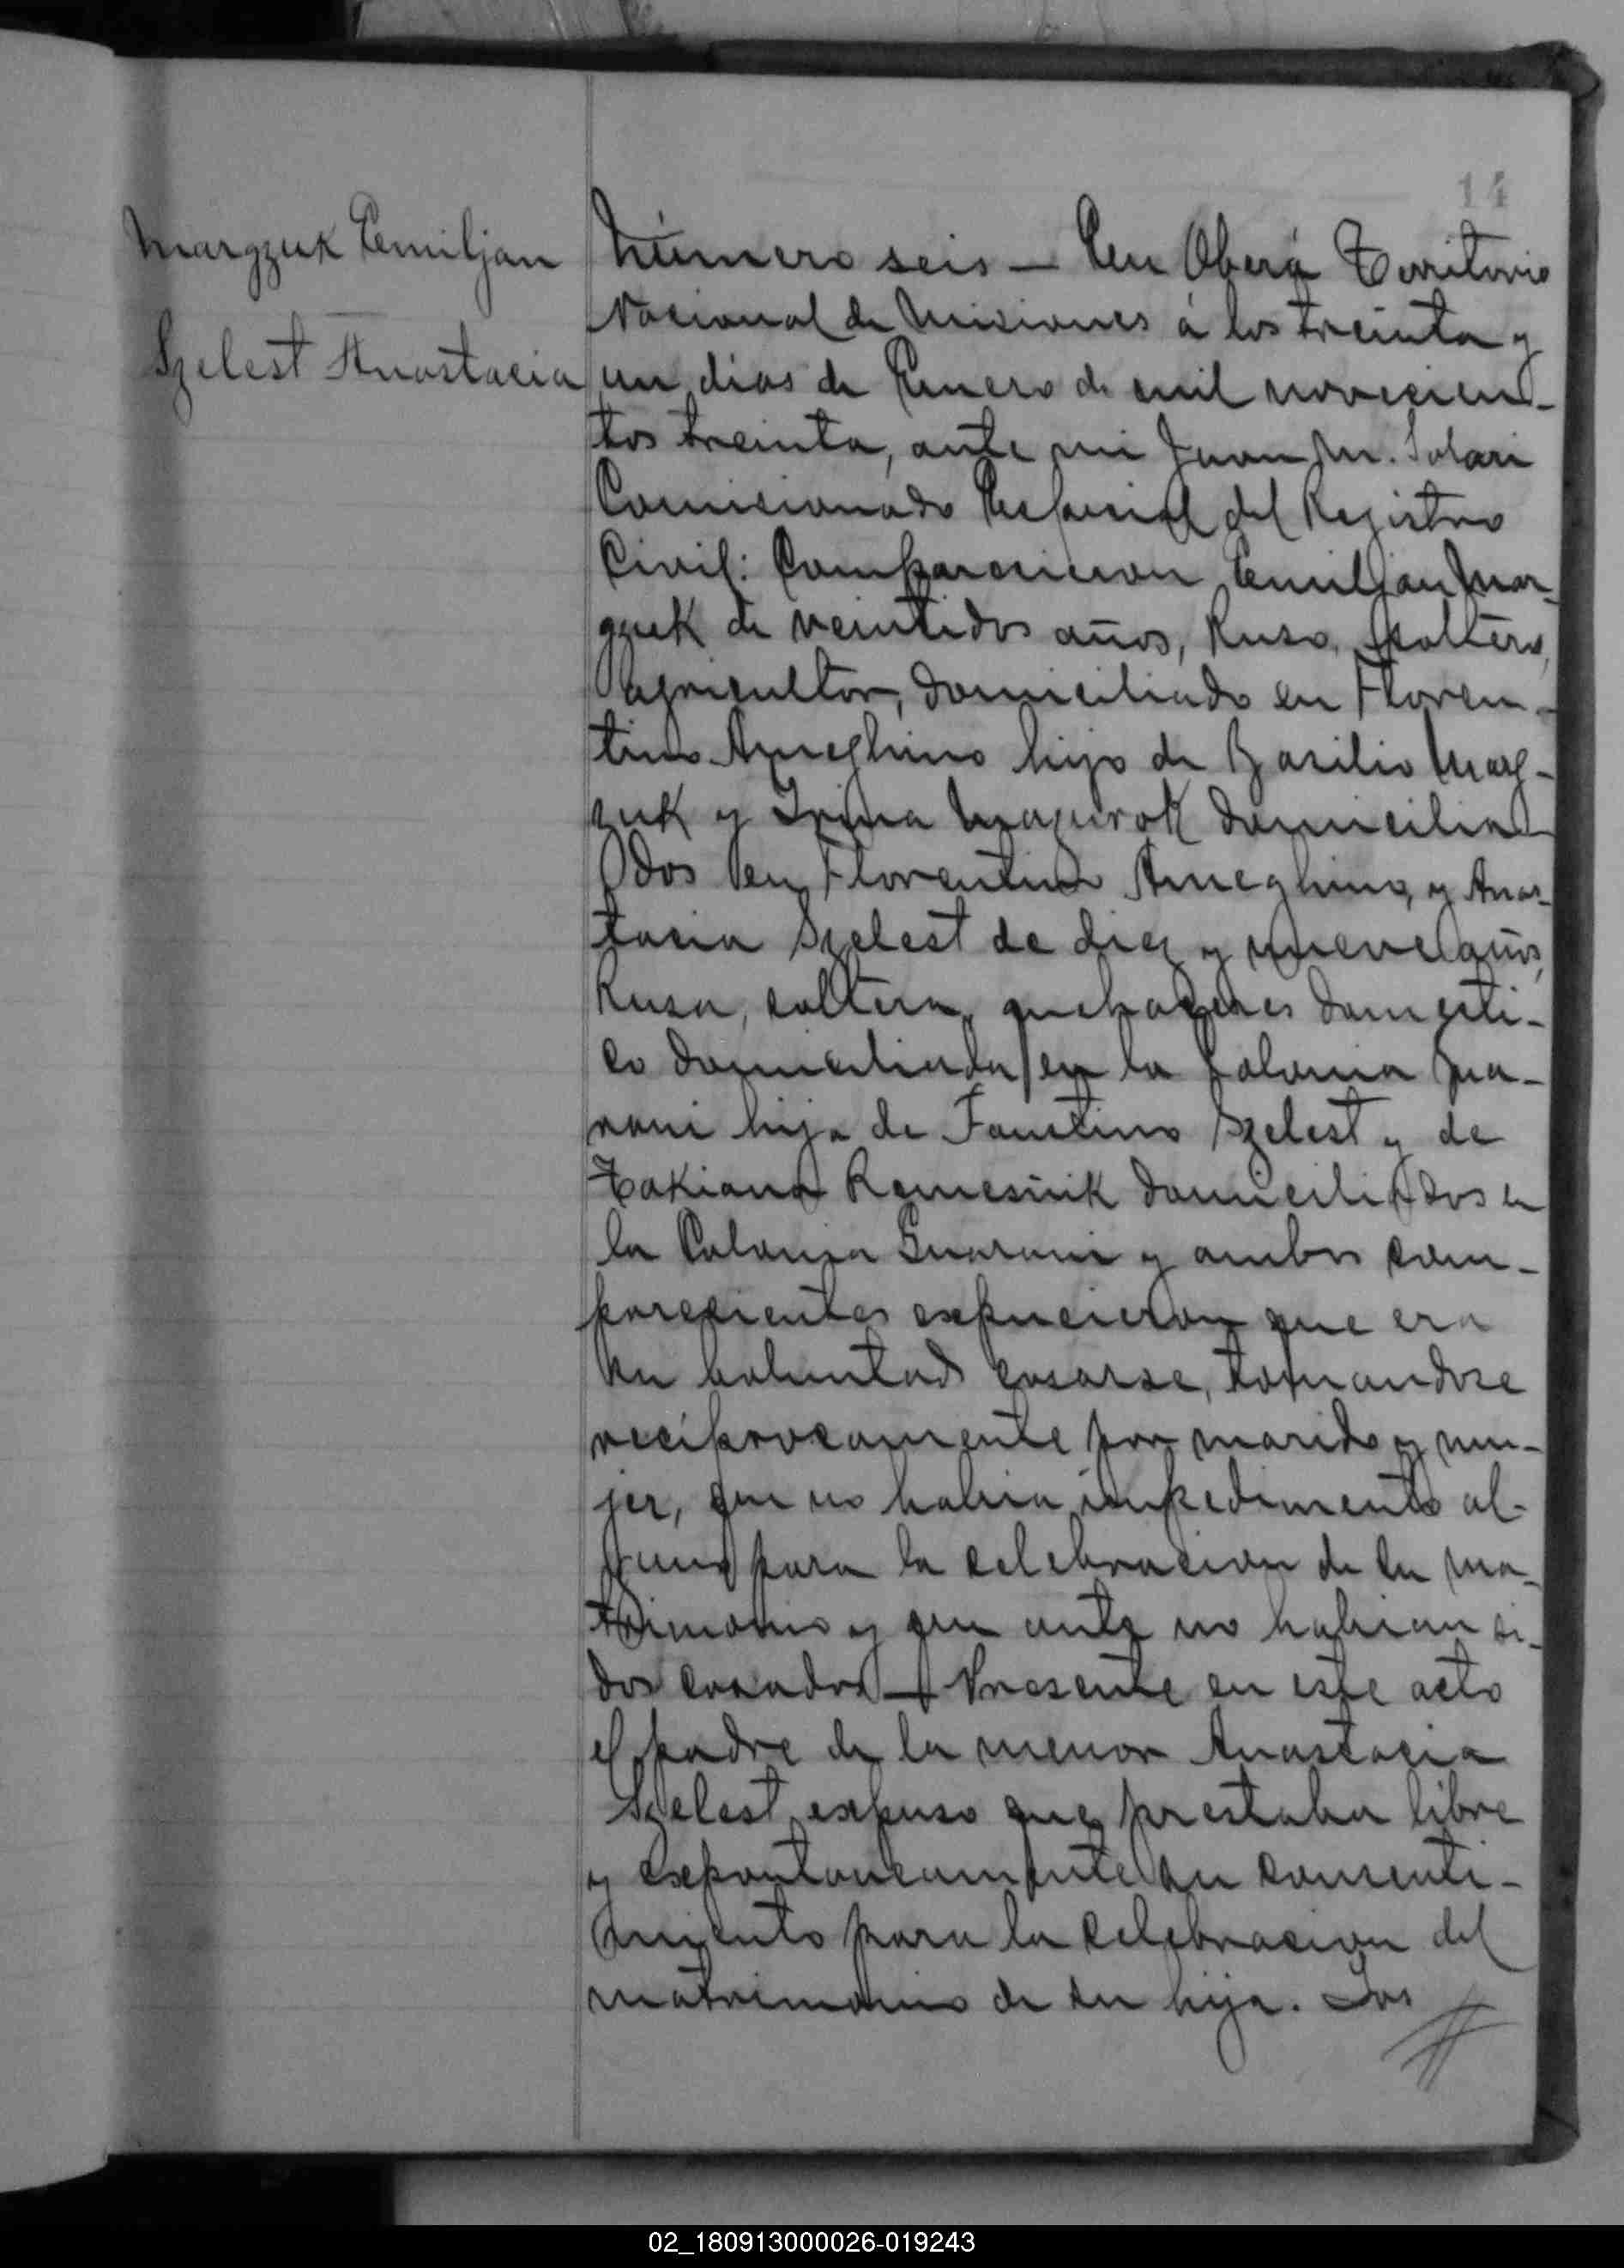 14
Margzuk Emiljan
Szelest Anastacia
Número seis — En Oberá Territorio
Nacional de Misiones á los treinta y
un dias de Enero de mil novecien-
tos treinta, ante mi Juan M. Solari
Comisionado Especial del Registro
Civil: Comparecieron Emiljan Mar-
gzuk de veintidos años, Ruso, soltero,
agricultor, domiciliado en Floren-
tino Ameghino hijo de Basilio Marg-
zuk y Irina Mazurok domicilia-
dos en Florentino Ameghino, y Anas-
tacia Szelest de diez y nueve años,
Rusa, soltera, quehaceres domesti-
co domiciliada en la Colonia Gua-
rani hija de Faustino Szelest y de
Takiana Romesñik domiciliados en
la Colonia Guarani y ambos com-
parecientes expucieron que era
su boluntad casarse, tomandose
reciprocamente por marido y mu-
jer, que no habia impedimento al-
guno para la celebracion de su ma-
trimonio y que ante no habian si-
dos casados — Presente en este acto
el padre de la menor Anastacia
Szelest, expuso que prestaba libre
y expontaneamente su consenti-
miento para la celebracion del
matrimonio de su hija. Los
02_180913000026-019243